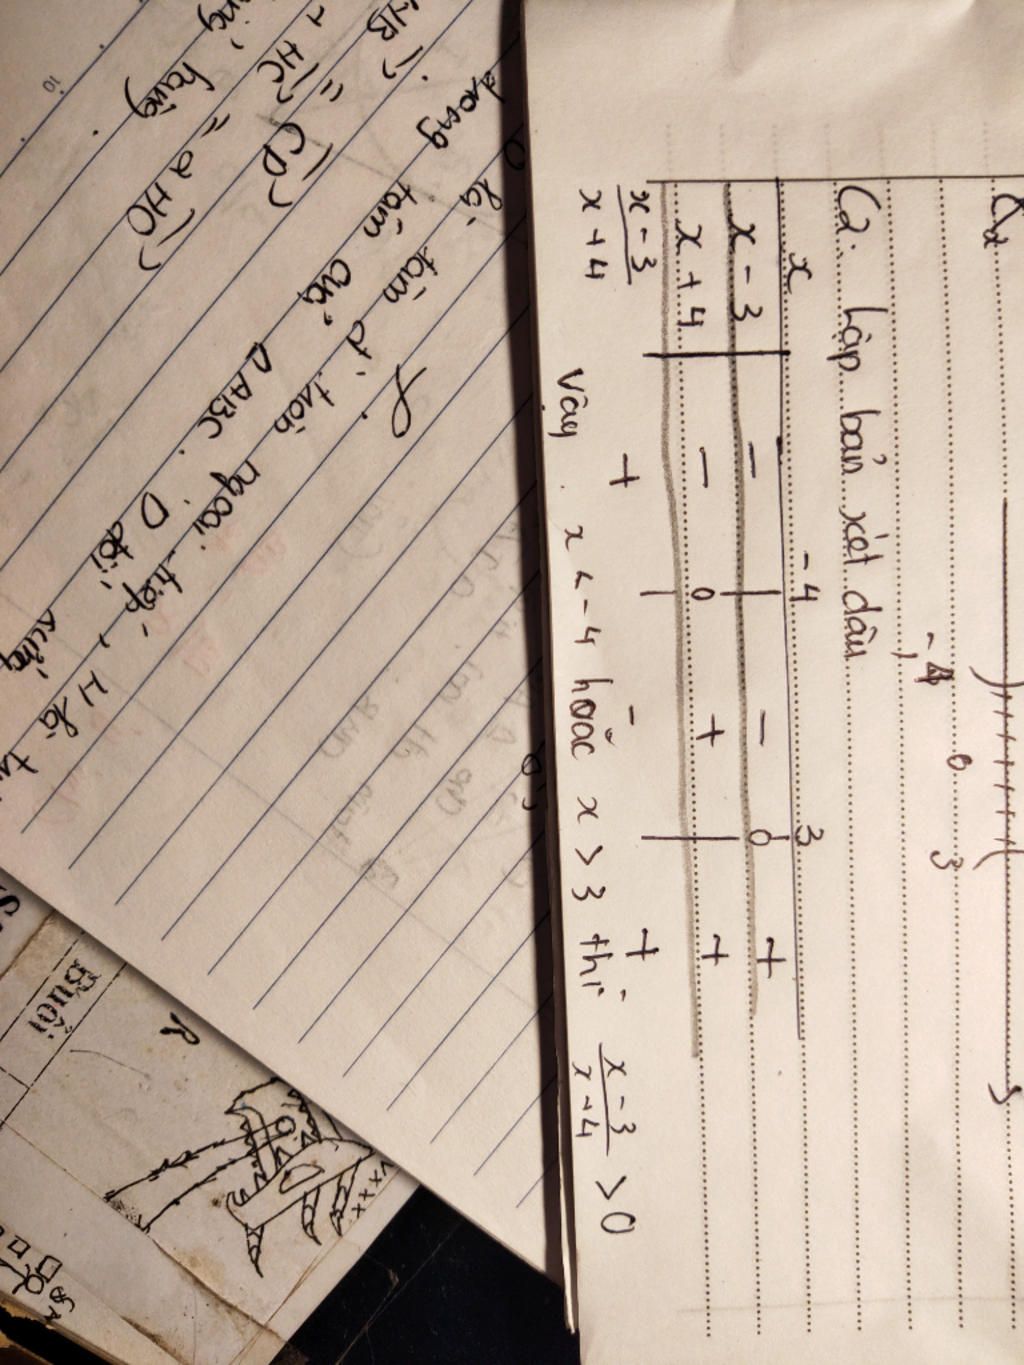 - 4 0 3
C2. Lập bản xét dấu
x -4 3
x - 3 - - 0 +
x + 4 - 0 + +
x - 3
x + 4 + - +
Vậy x < -4 hoặc x > 3 thì x - 3 / x + 4 > 0
O là tâm đ' tròn ngoại tiếp, H là
trong tâm của ΔABC. D đối xứng
HB = CD
+ HC = 2HO
hàng
Buổi